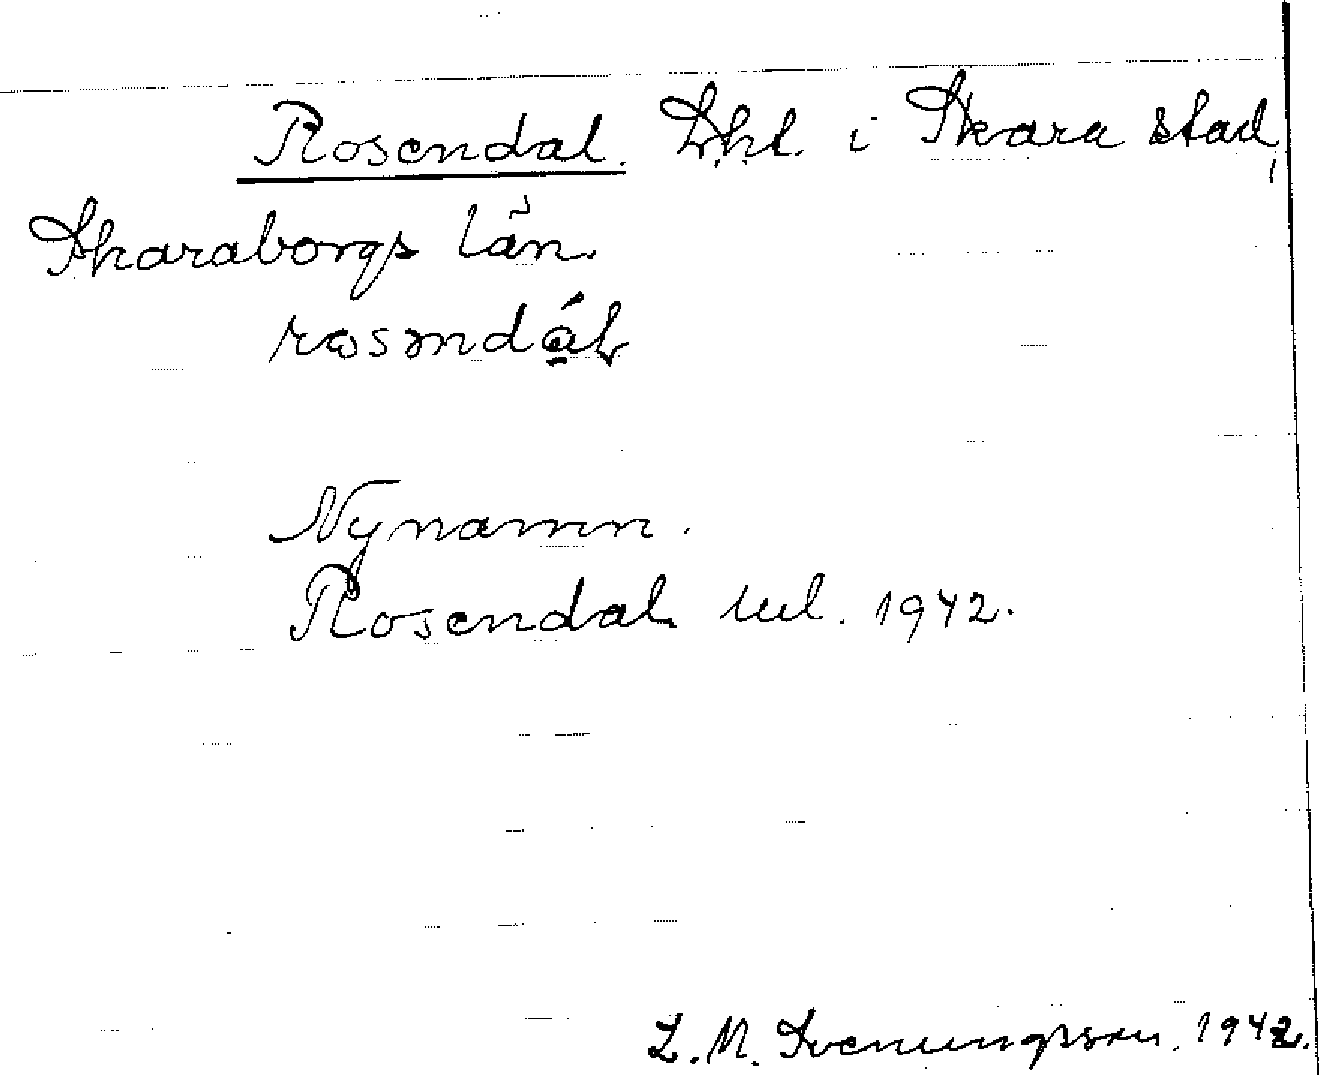 Rosendal. Lht. i Skara stad,
Skaraborgs län.
rosəndál
Nynamn.
Rosendal. utt. 1942.
L. M. Svenungsson. 1942.